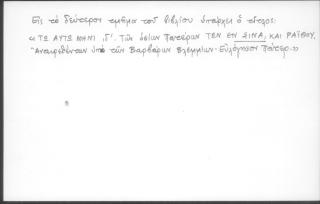 Εἰς τὸ δεύτερον τμῆμα τοῦ βιβλίου ὑπάρχει ὁ τίτλος:
«ΤΩ ΑΥΤΩ ΜΗΝΙ, ιδ'. Τῶν ὁσίων Πατέρων ΤΩΝ ΕΝ ΣΙΝΑ, ΚΑΙ ΡΑΪΘΟΥ,
"Ἀναιρεθέντων ὑπὸ τῶν Βαρβάρων Βλεμμύων· Εὐλόγησον Πάτερ.»